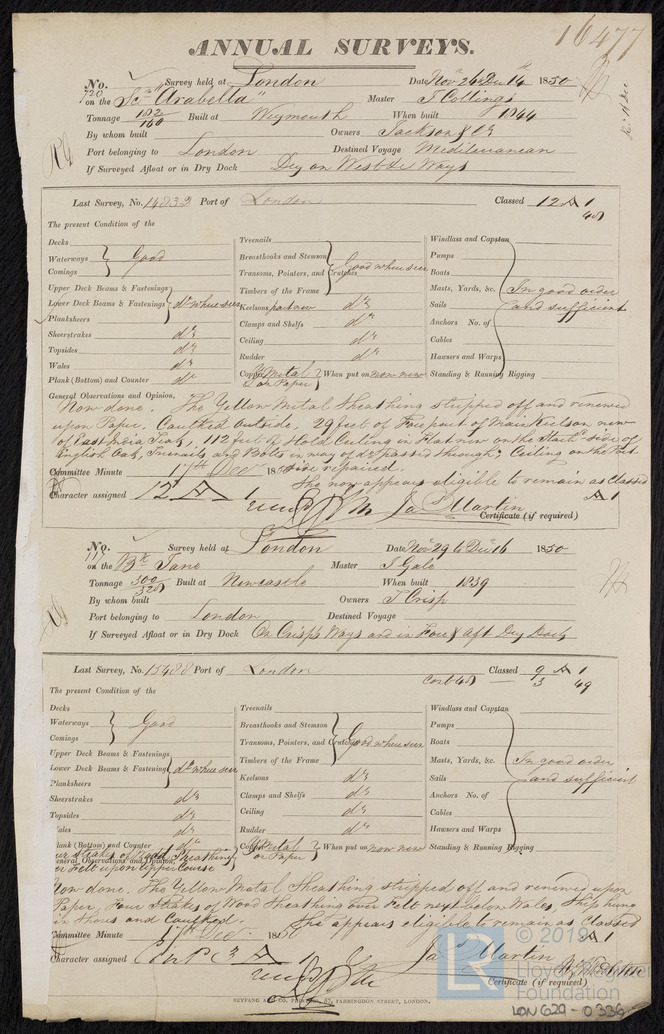 16477
ANNUAL SURVEYS.
No. 720 Survey held at London Date Novr 26 to Dec 14 1850
on the Scr Arabella Master J Collings
Tonnage 182/160 Built at Weymouth When built 1844
By whom built Owners Jackson & Co
Port belonging to London Destined Voyage Mediterranean
If Surveyed Afloat or in Dry Dock Dry on West & Co Ways
Last Survey, No. 14832 Port of London Classed 12 A 1
48
The present Condition of the
Decks
Waterways Good
Comings
Upper Deck Beams & Fastenings
Lower Deck Beams & Fastenings do where seen
Planksheers
Sheerstrakes do
Topsides do
Wales do
Plank (Bottom) and Counter do
Treenails
Breasthooks and Stemson
Transoms, Pointers, and Crutches Good where seen
Timbers of the Frame
Keelsons part new do
Clamps and Shelfs do
Ceiling do
Rudder do
Copper Y Metal on Paper When put on now new
Windlass and Capstan
Pumps
Boats
Masts, Yards, &c. In good order
Sails and sufficient
Anchors No. of
Cables
Hawsers and Warps
Standing & Running Rigging
General Observations and Opinion,
Now done. The Yellow Metal Sheathing stripped off and renewed
upon Paper. Caulked outside, 29 feet of Fore part of Main Keelson new
of East India Teak, 112 feet of Hold Ceiling in Flat new on the Starbd side of
English Oak, Treenails and Bolts in way of do passed through, Ceiling on the Port
side repaired.
Committee Minute 17th Dec 1850
She now appears eligible to remain as Classed
Character assigned 12 A 1 A 1
Jas Martin
Certificate (if required)
No. 117 Survey held at London Date Novr 29 to Dec 16 1850
on the Bk Jane Master J Gale
Tonnage 300/328 Built at Newcastle When built 1839
By whom built Owners J Crisp
Port belonging to London Destined Voyage
If Surveyed Afloat or in Dry Dock On Crisps Ways and in Fore & Aft Dry Dock
Last Survey, No. 15488 Port of London Classed 9 A 1
Cont 48 3 49
The present Condition of the
Decks
Waterways Good
Comings
Upper Deck Beams & Fastenings
Lower Deck Beams & Fastenings do where seen
Planksheers
Sheerstrakes do
Topsides do
Wales do
Plank (Bottom) and Counter do
Treenails
Breasthooks and Stemson
Transoms, Pointers, and Crutches Good where seen
Timbers of the Frame
Keelsons do
Clamps and Shelfs do
Ceiling do
Rudder do
Copper Y Metal on Paper When put on now new
Windlass and Capstan
Pumps
Boats
Masts, Yards, &c. In good order
Sails and sufficient
Anchors No. of
Cables
Hawsers and Warps
Standing & Running Rigging
General Observations and Opinion,
strakes of Wood Sheathing
Felt upon Upper Course
Now done. The Yellow Metal Sheathing stripped off and renewed upon
Paper, Four Strakes of Wood Sheathing over Felt next below Wales, Ship hung
in Shores and Caulked. She appears eligible to remain as Classed
Committee Minute 17th Dec 1850 A 1
Character assigned A 1 Jas Martin
Certificate (if required)
SEYFANG & CO. PRINTERS, 57, FARRINGDON STREET, LONDON.
© 2019
LR
Lloyd's Register
Foundation
LON 629-0336